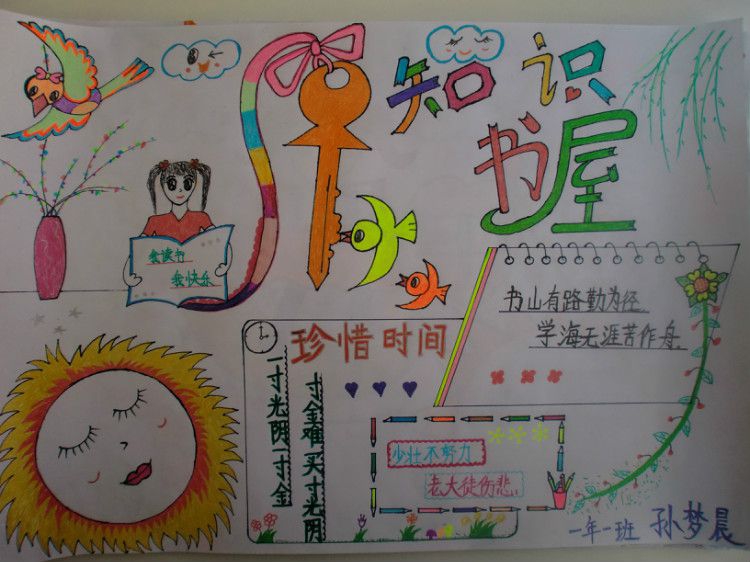 知识
书屋
会读书
我快乐
书山有路勤为径
学海无涯苦作舟
珍惜时间
一寸光阴一寸金
寸金难买寸光阴
少壮不努力
老大徒伤悲
一年一班 孙梦晨